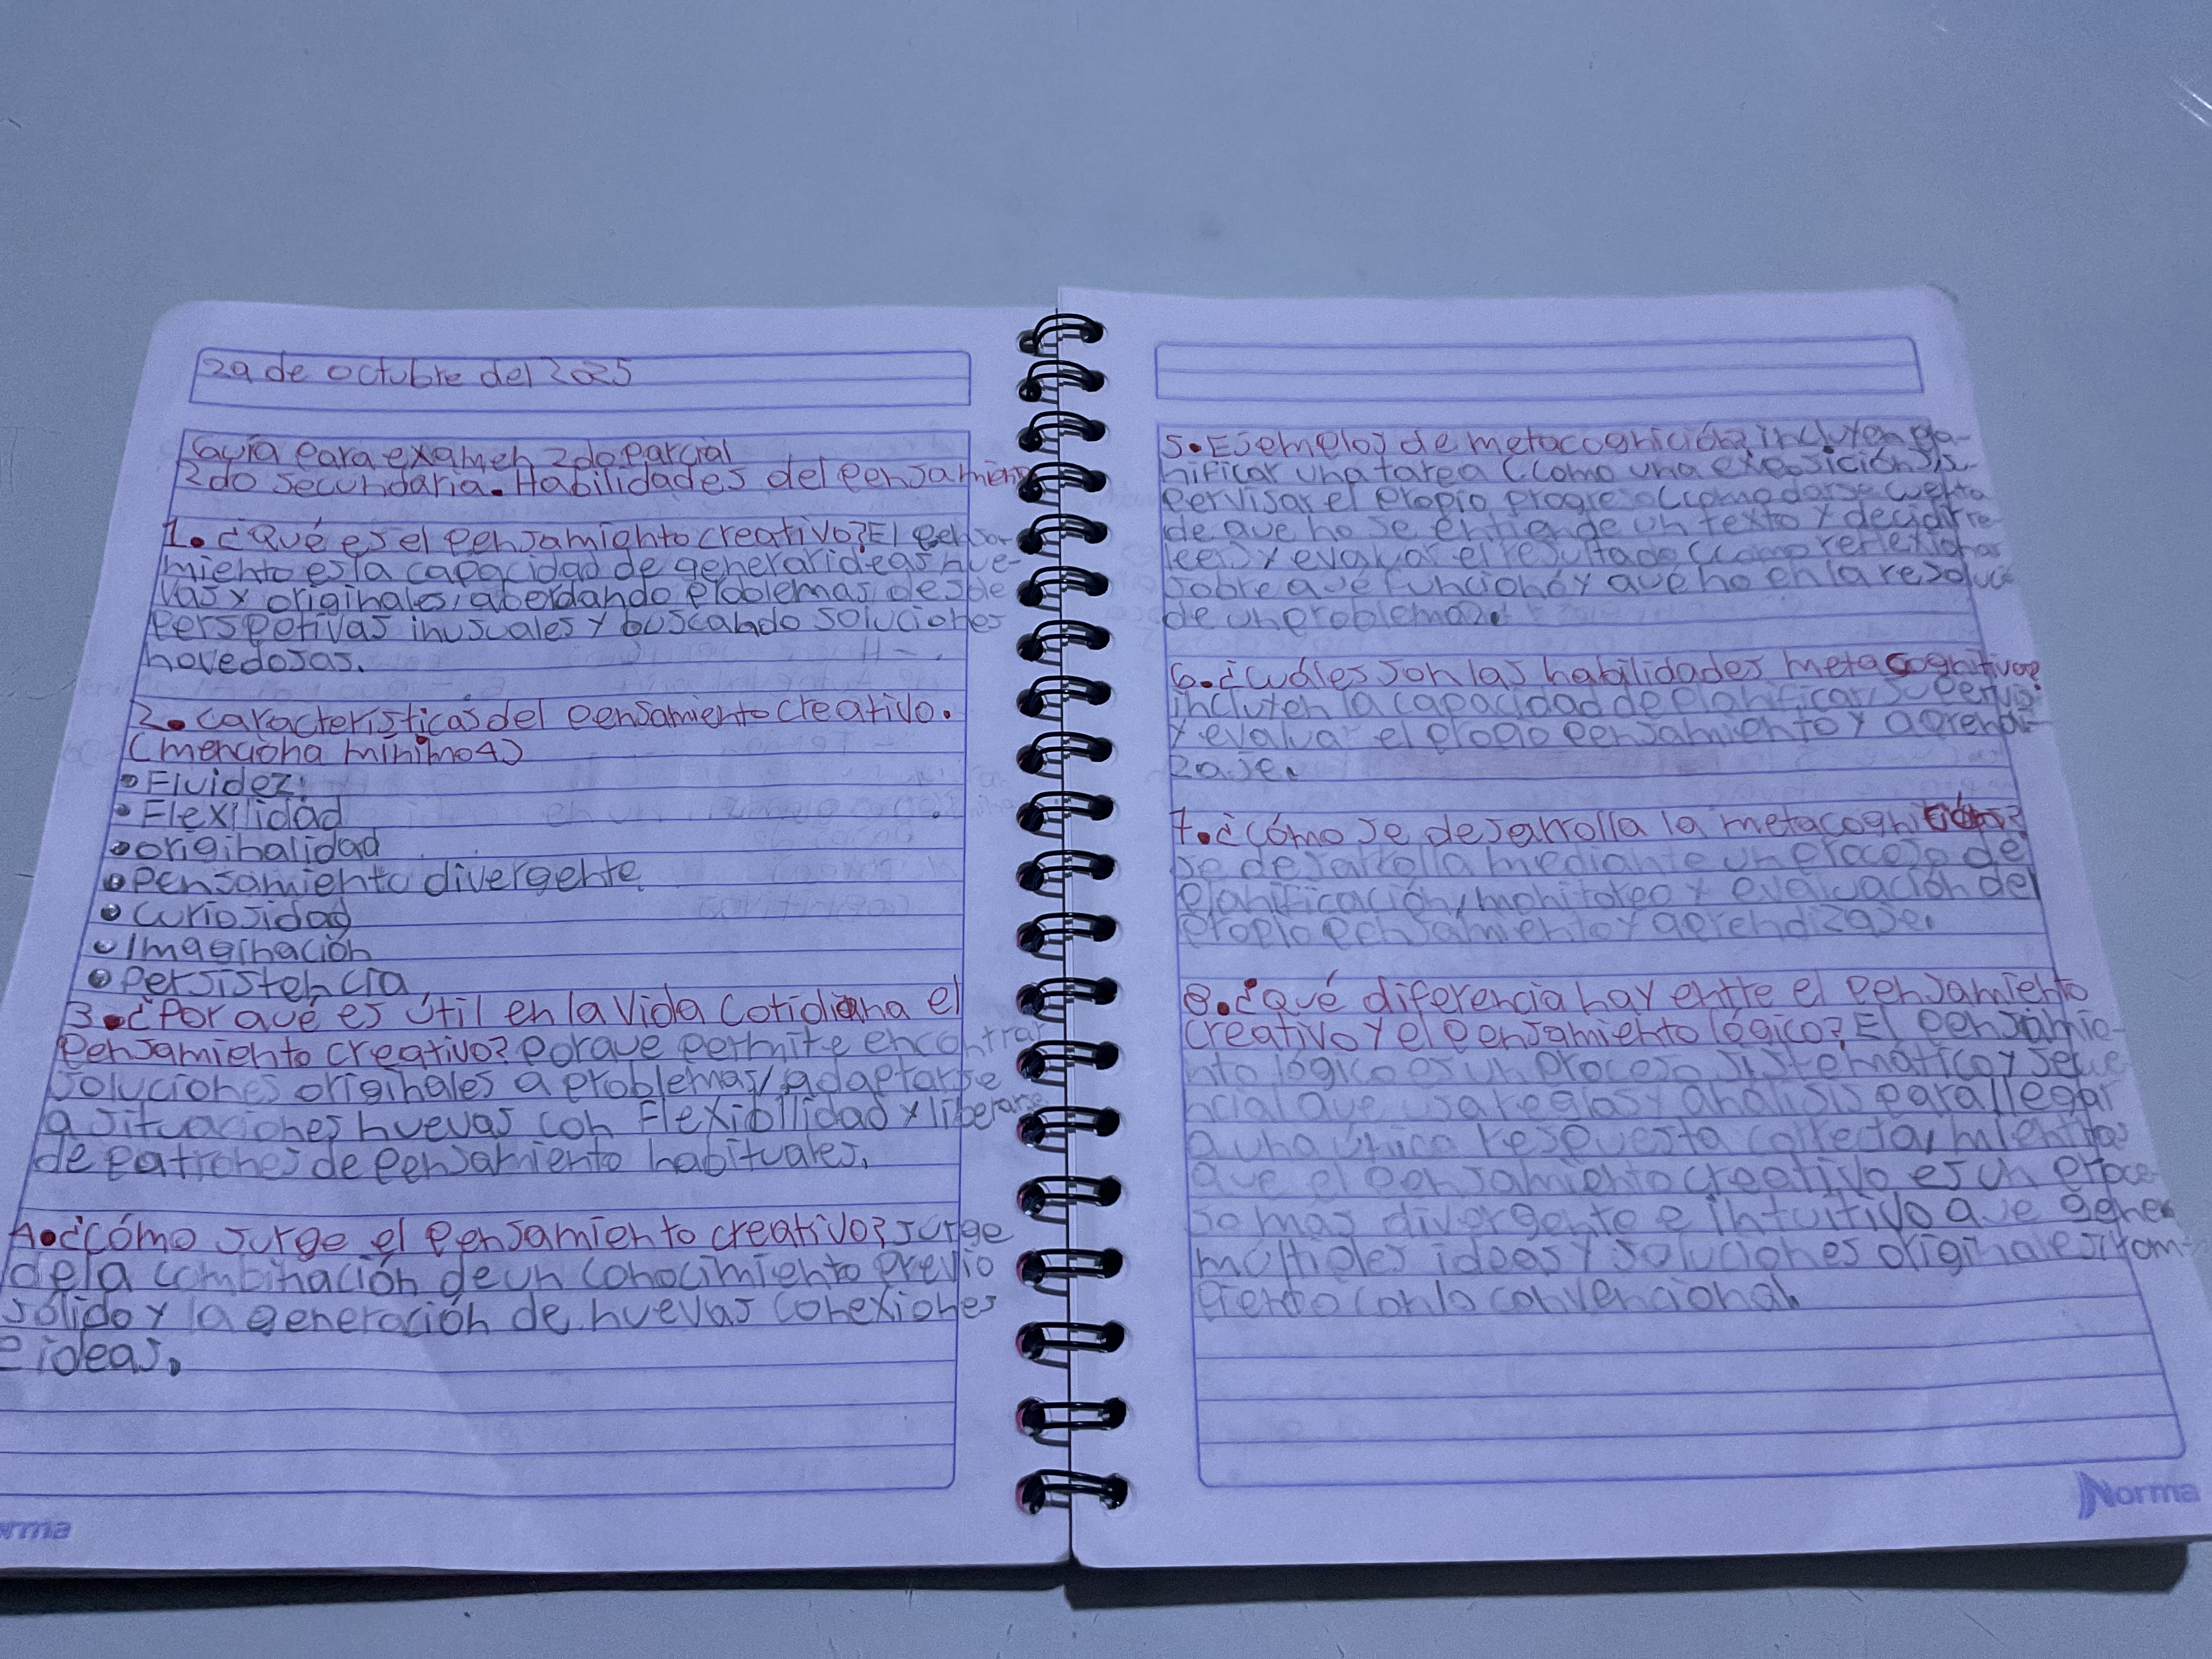 29 de octubre del 2025
Guía para examen 2do parcial
2do Secundaria. Habilidades del pensamiento
1. ¿Qué es el pensamiento creativo? El pensa-
miento es la capacidad de generar ideas nue-
vas y originales, abordando problemas desde
perspetivas inusuales y buscando soluciones
novedosas.
2. características del pensamiento creativo.
(menciona mínimo 4)
• Fluidez
• Flexilidad
• originalidad
• pensamiento divergente
• curiosidad
• Imaginación
• persistencia
3. ¿Por qué es útil en la vida cotidiana el
pensamiento creativo? porque permite encontrar
soluciones originales a problemas, adaptarse
a situaciones nuevas con Flexibilidad y liberarse
de patrones de pensamiento habituales.
4. ¿cómo surge el pensamiento creativo? surge
de la combinación de un conocimiento previo
sólido y la generación de nuevas conexiones
e ideas.
5. Ejemplos de metacognición? incluyen pla-
nificar una tarea (como una exposición), su-
pervisar el propio progreso (como darse cuenta
de que no se entiende un texto y decidir re-
leer) y evaluar el resultado (como reflexionar
sobre qué funcionó y qué no en la resolució
de un problema).
6. ¿Cuáles son las habilidades metacognitivas?
incluyen la capacidad de planificar, supervis
y evaluar el propio pensamiento y aprendi-
zaje.
7. ¿cómo se desarrolla la metacognición?
se desarrolla mediante un proceso de
planificación, monitoreo y evaluación del
propio pensamiento y aprendizaje.
8. ¿Qué diferencia hay entre el pensamiento
creativo y el pensamiento lógico? El pensamie-
nto lógico es un proceso sistemático y secue-
ncial que usa reglas y análisis para llegar
a una única respuesta correcta, mientras
que el pensamiento creativo es un proce-
so más divergente e intuitivo que gener
múltiples ideas y soluciones originales, rom-
piendo con lo convencional.
orma
Norma